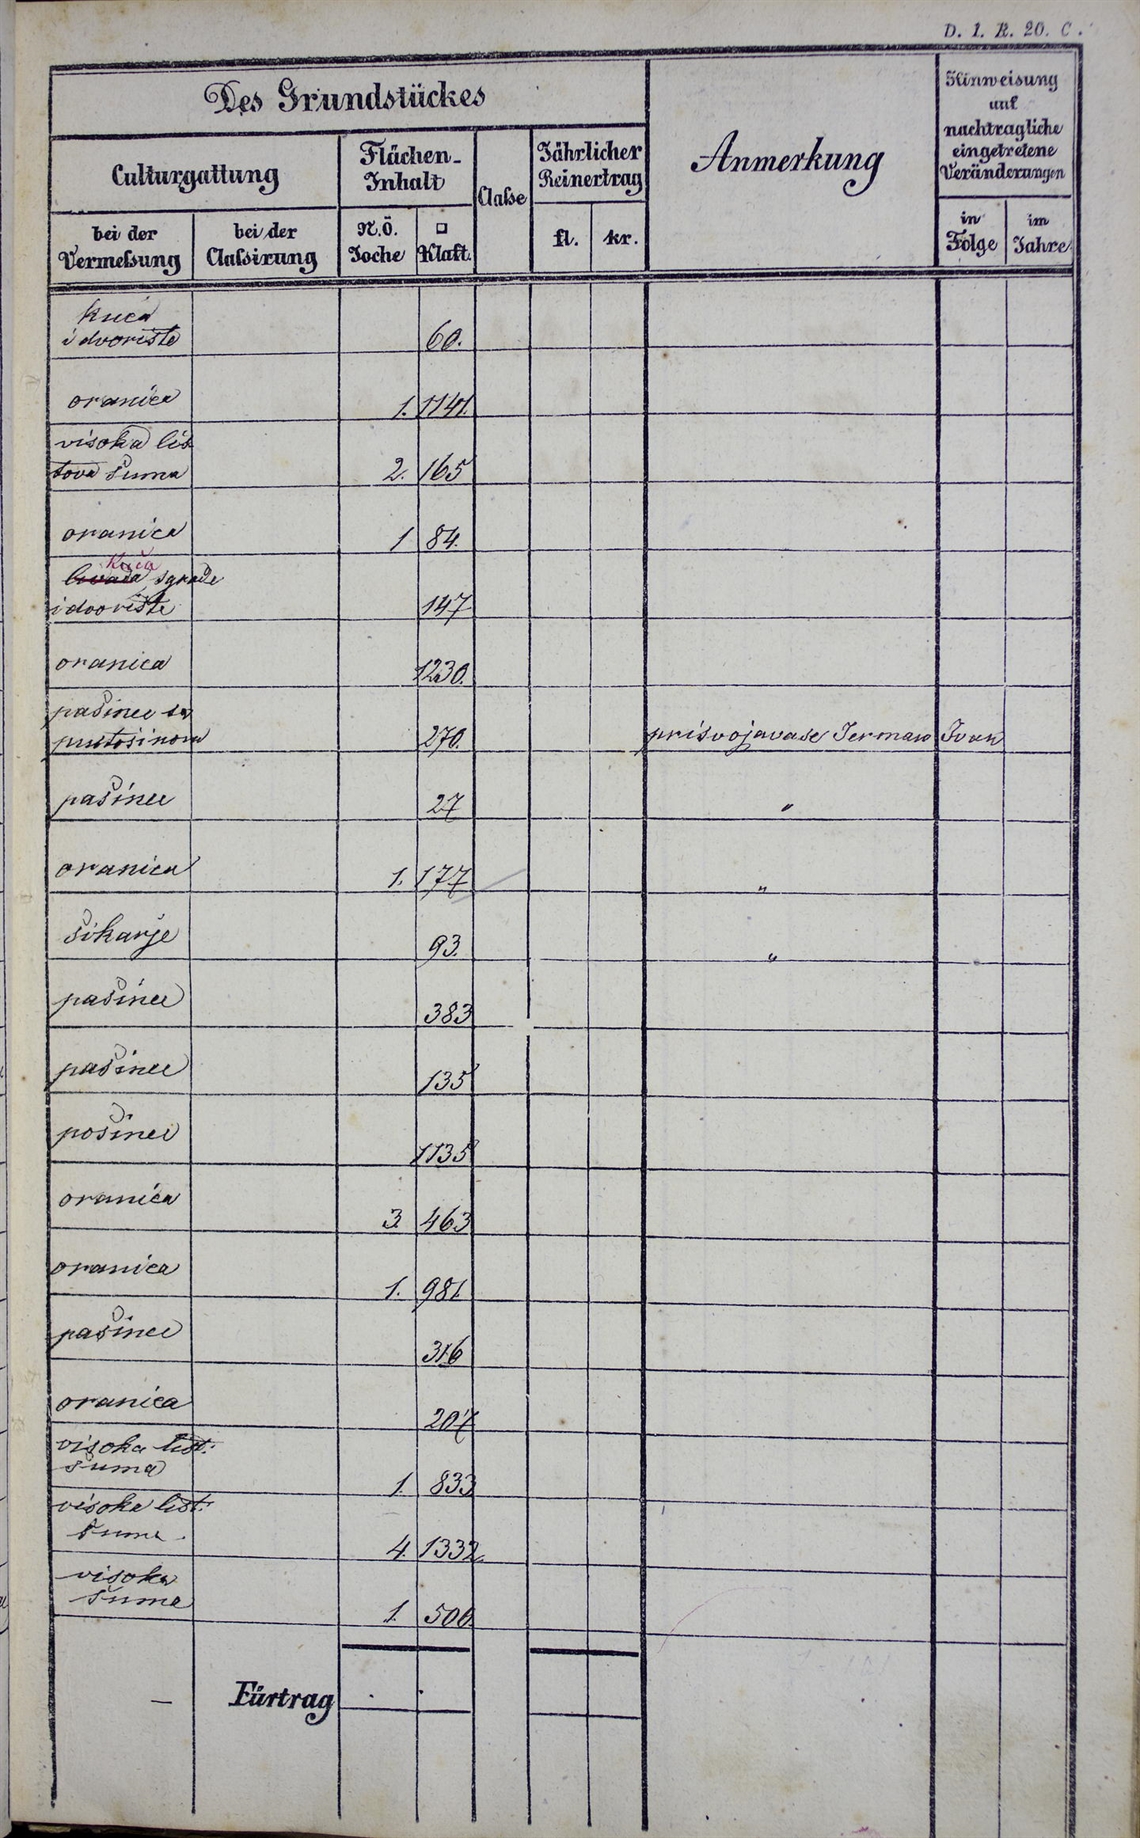 D. 1. R. 20. C.
Des Grundstückes
Anmerkung
Hinweisung
auf
nachtragliche
eingetretene
Veränderungen
Culturgattung
Flächen-
Inhalt
Classe
Jährlicher
Reinertrag
bei der
Vermeßung
bei der
Claßirung
N.Ö.
Joche
□
Klaft.
fl.
kr.
in
Folge
im
Jahre
kuća
i dvorište
60.
oranica
1. 1141.
visoka lis
tova šuma
2. 165
oranica
1 84.
Kuća
livada sgrade
i dvorište
147
oranica
1230.
pašinec sa
270. prisvojavase Jerman Ivan
pašinec
27 "
oranica
1. 177 "
šikarje
93. "
pašinec
383
pašinec
135
pošinec
1135
oranica
3. 463
oranica
1. 981.
pašinec
316
oranica
207
visoka list.
šuma
1. 833
visoka list.
šuma.
4. 1332
visoka
šuma
1. 500.
– Fürtrag